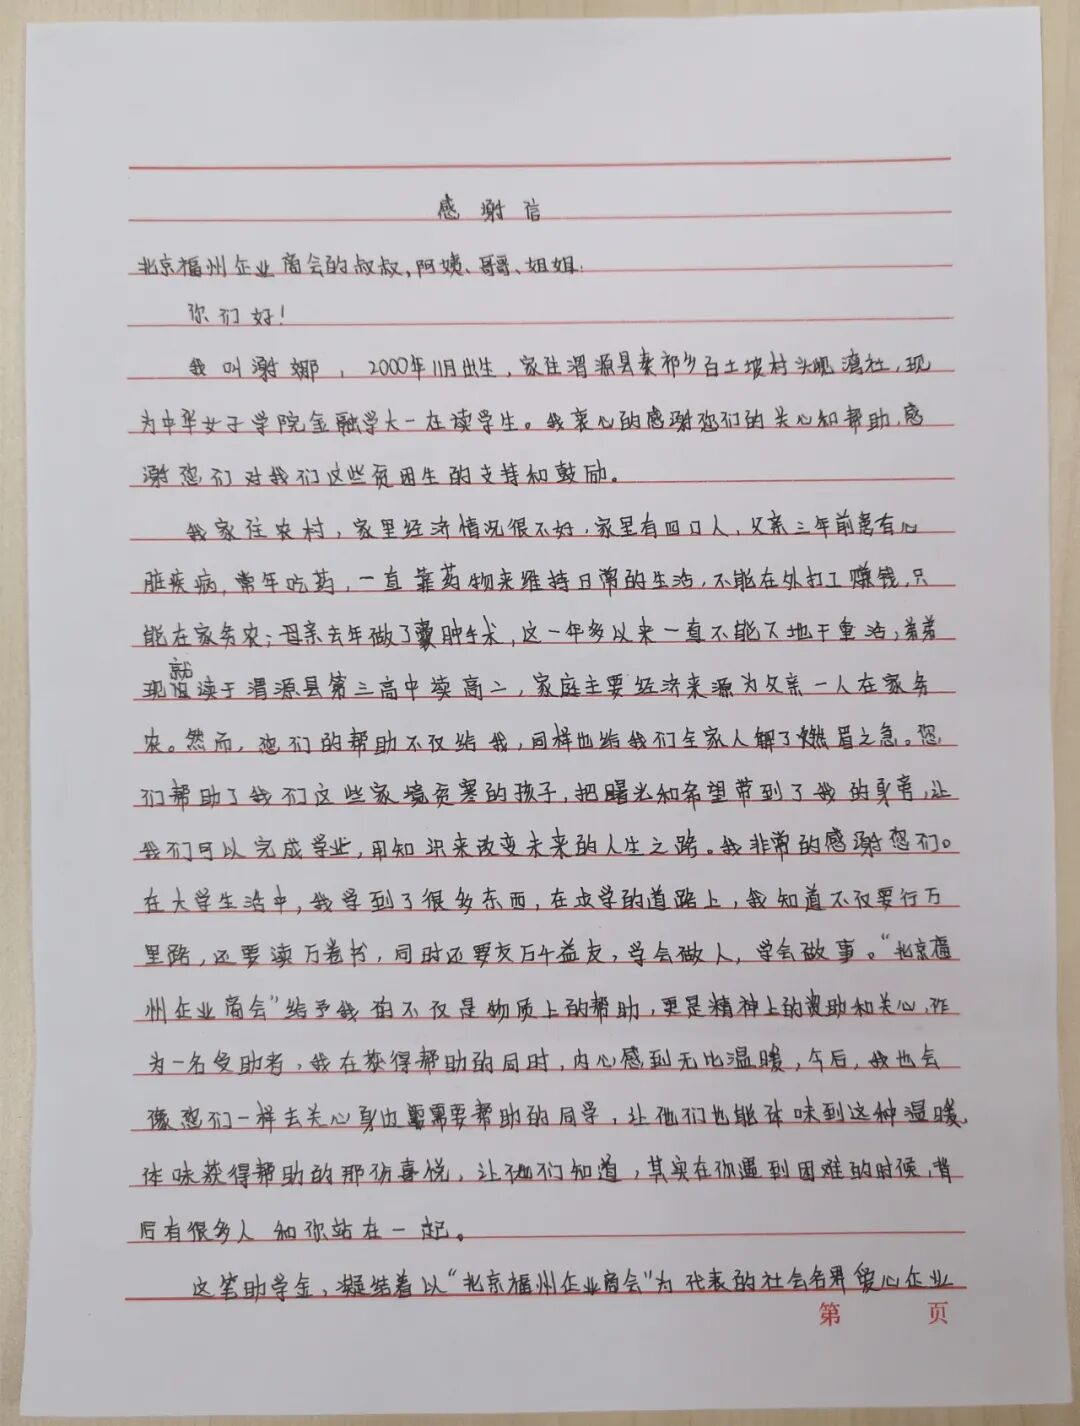 感谢信
北京福州企业商会的叔叔,阿姨、哥哥、姐姐:
你们好!
我叫谢娜,2000年11月出生,家住渭源县秦祁乡白土坡村头岘湾社,现
为中华女子学院金融学大一在读学生。我衷心的感谢您们的关心和帮助,感
谢您们对我们这些贫困生的支持和鼓励。
我家住农村,家里经济情况很不好,家里有四口人,父亲三年前患有心
脏疾病,常年吃药,一直靠药物来维持日常的生活,不能在外打工赚钱,只
能在家务农;母亲去年做了囊肿手术,这一年多以来一直不能下地干重活;弟弟
现就读于渭源县第三高中读高二,家庭主要经济来源为父亲一人在家务
农。然而,您们的帮助不仅给我,同样也给我们全家人解了燃眉之急。您
们帮助了我们这些家境贫寒的孩子,把曙光和希望带到了我的身旁,让
我们可以完成学业,用知识来改变未来的人生之路。我非常的感谢您们。
在大学生活中,我学到了很多东西,在求学的道路上,我知道不仅要行万
里路,还要读万卷书,同时还要交万千益友,学会做人,学会做事。“北京福
州企业商会”给予我的不仅是物质上的帮助,更是精神上的资助和关心,作
为一名受助者,我在获得帮助的同时,内心感到无比温暖,今后,我也会
像您们一样去关心身边需要帮助的同学,让他们也能体味到这种温暖,
体味获得帮助的那份喜悦,让他们知道,其实在你遇到困难的时候,背
后有很多人和你站在一起。
这笔助学金,凝结着以“北京福州企业商会”为代表的社会各界爱心企业
第 页